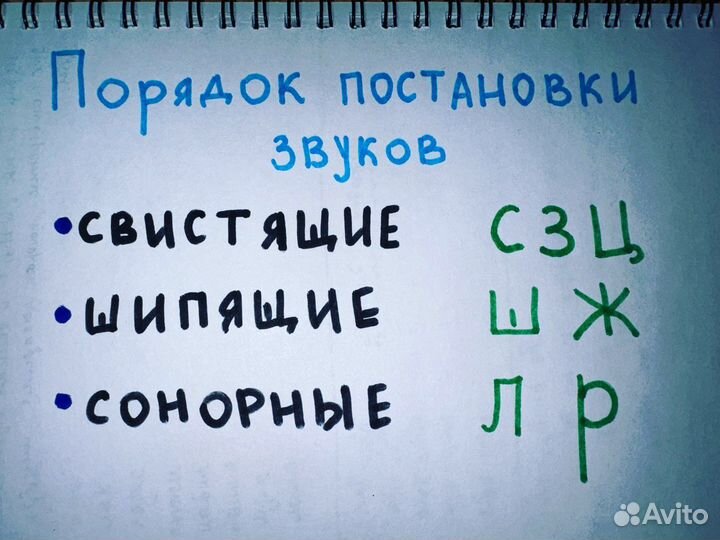 Порядок постановки
звуков
•свистящие СЗЦ
•шипящие Ш Ж
•сонорные Л Р
Avito